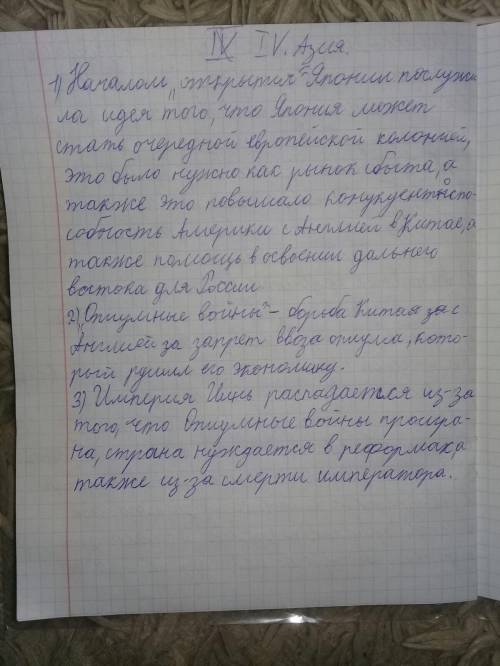 IV IV. Азия.
1) Началом „открытия" Японии послужи
ла идея того, что Япония может
стать очередной европейской колонией,
это было нужно как рынок сбыта, а
также это повышало конукуентноспо-
собность Америки с Англией в Китае, а
также помощь в освоении дальнего
востока для России
2) „Опиумные войны" – борьба Китая за с
Англией за запрет ввоза опиума, кото-
рый рушил его экономику.
3) Империя Цинь распадается из-за
того, что Опиумные войны проигра-
на, страна нуждается в реформах, а
также из-за смерти императора.